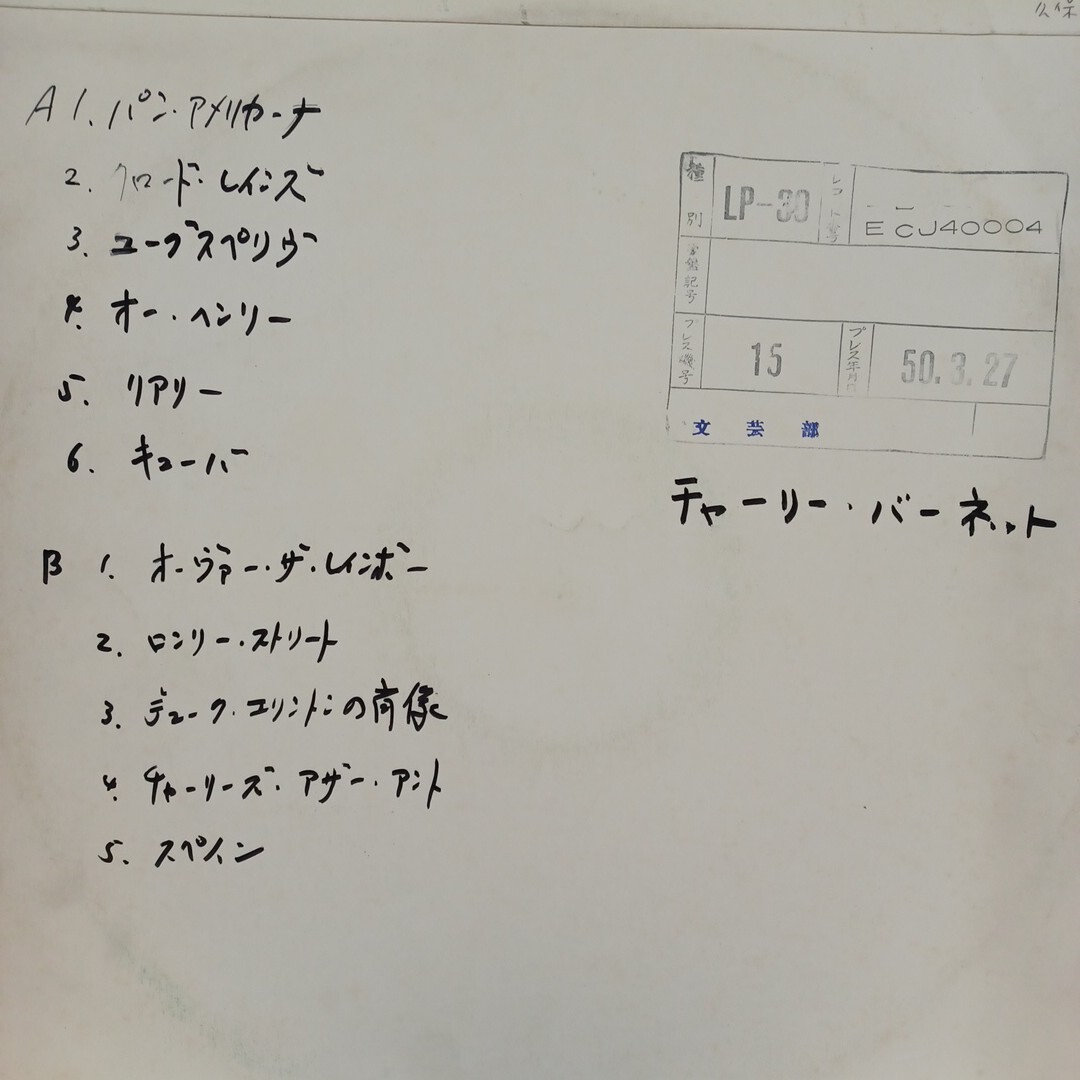 久保
A 1. パン・アメリカーナ
2. クロード・レインズ
3. ユーブスペリヴ
4. オー・ヘンリー
5. リアリー
6. キューバ
種別 LP-30 レコード番号 ECJ40004
プレス機号 15 プレス年月日 50.3.27
文芸部
チャーリー・バーネット
B 1. オーヴァー・ザ・レインボー
2. ロンリー・ストリート
3. デューク・エリントンの肖像
4. チャーリーズ・アザー・アント
5. スペイン